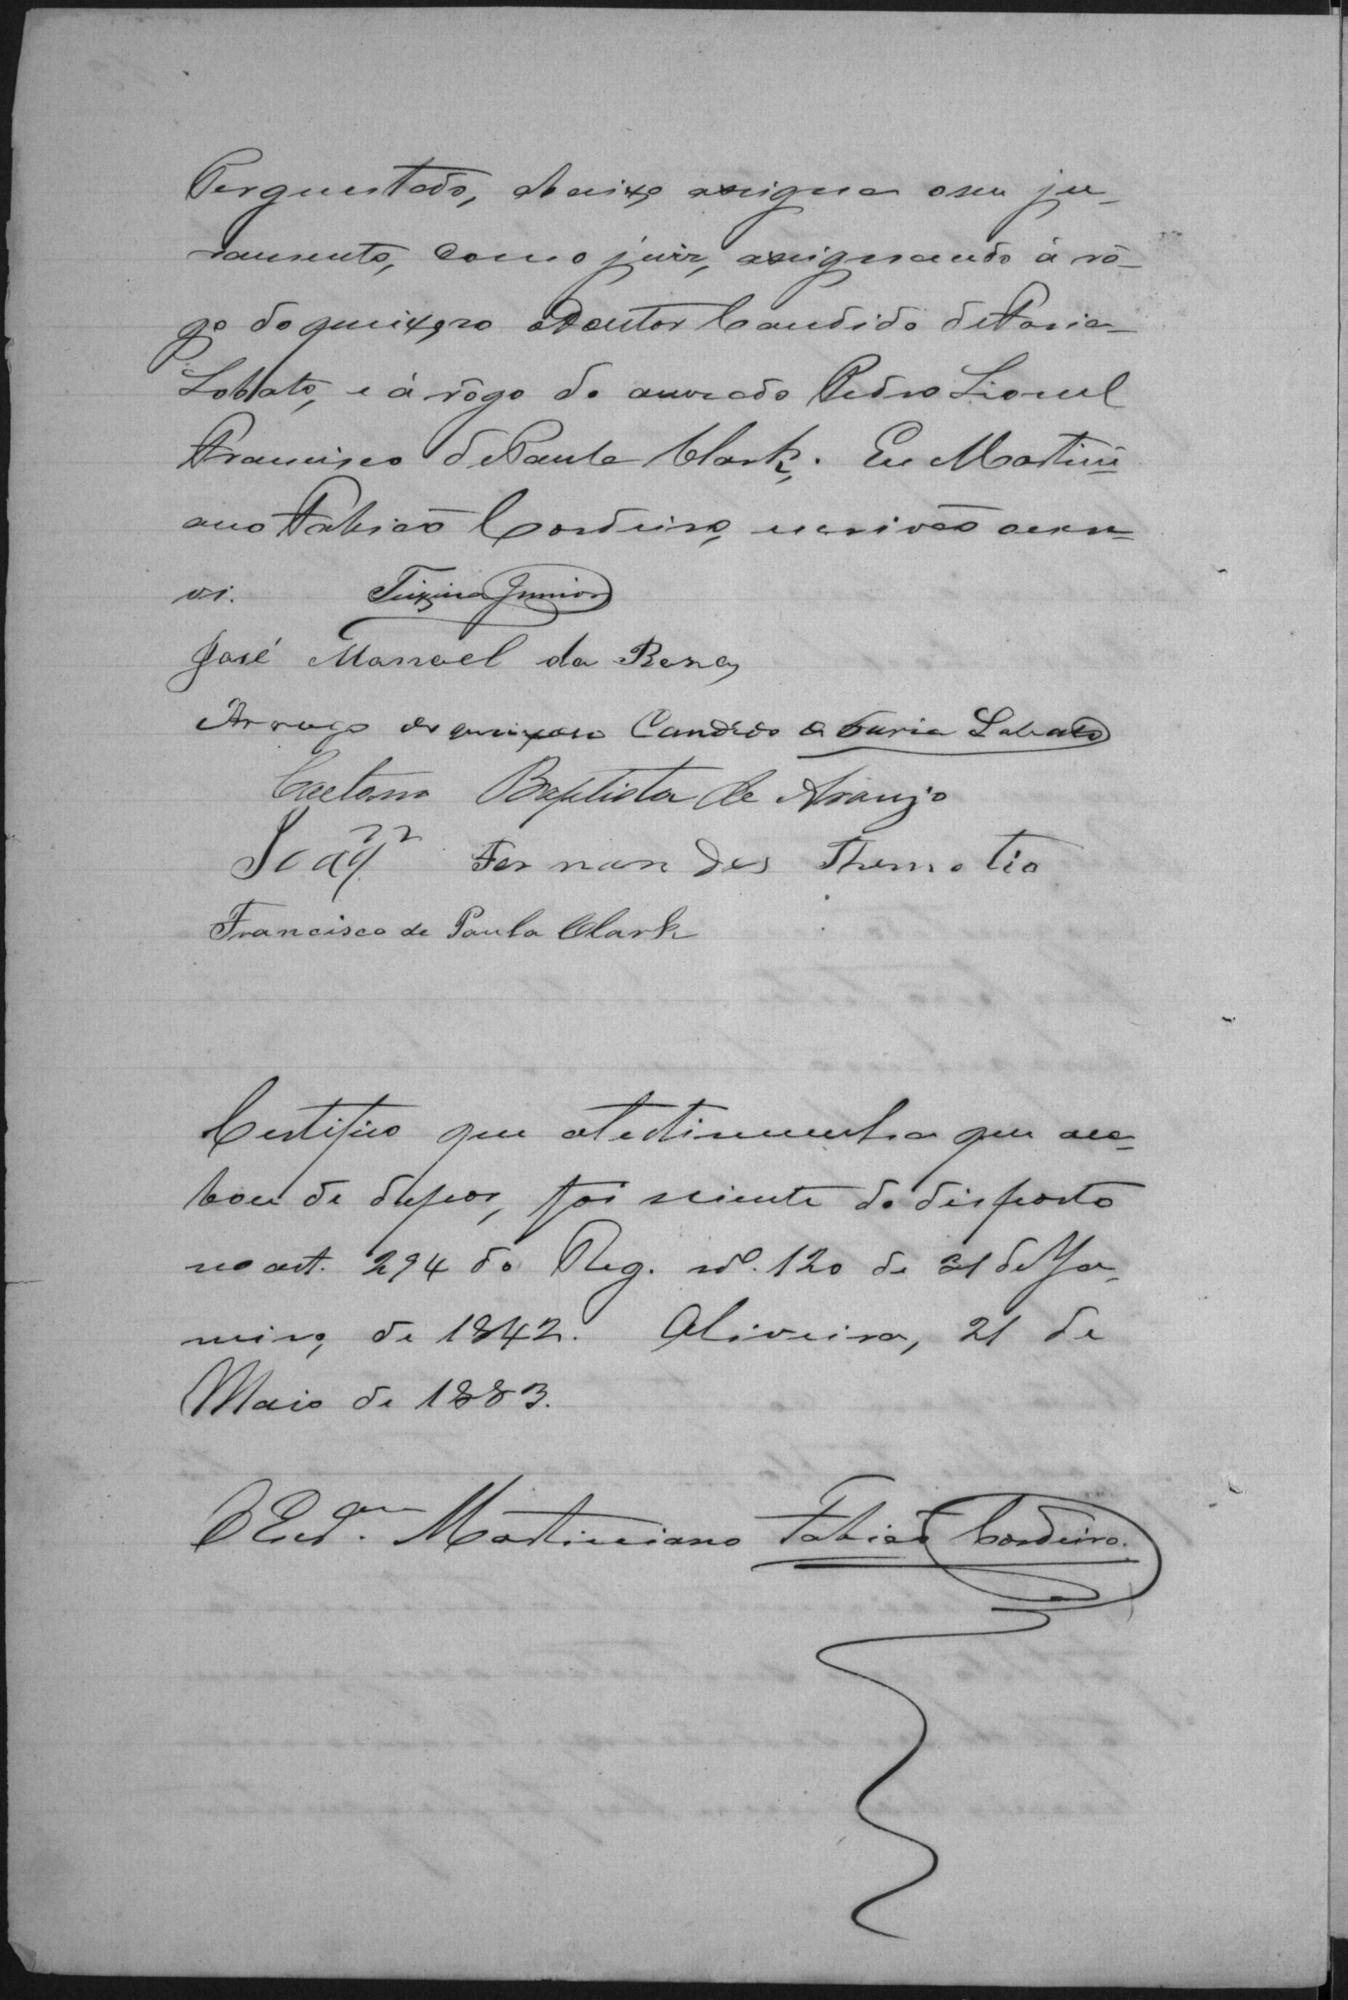 Perguntado, abaixo assigna o seu ju-
ramento, com o juiz, assignando á rô-
go do queixoso o Doutor Candido de Faria
Lobato, e á rôgo do accusado Pedro Lionel
Francisco de Paula Clark. Eu Martini-
ano Fabião Cordeiro, escrivão o escre-
vi. Teixeira Junior
José Manoel da
Arrogo do queixoso Candido de Faria Lobato
Caetano Baptista de Araujo
Joaqm Fernandes Themotio
Francisco de Paula Clark
Certifico que a testimunha que aca-
bou de depor, foi sciente do disposto
no art. 294 do Reg. nº. 120 de 31 de Ja-
neiro, de 1842. Oliveira, 21 de
Maio de 1883.
O Escram. Martiniano Fabião Cordeiro.